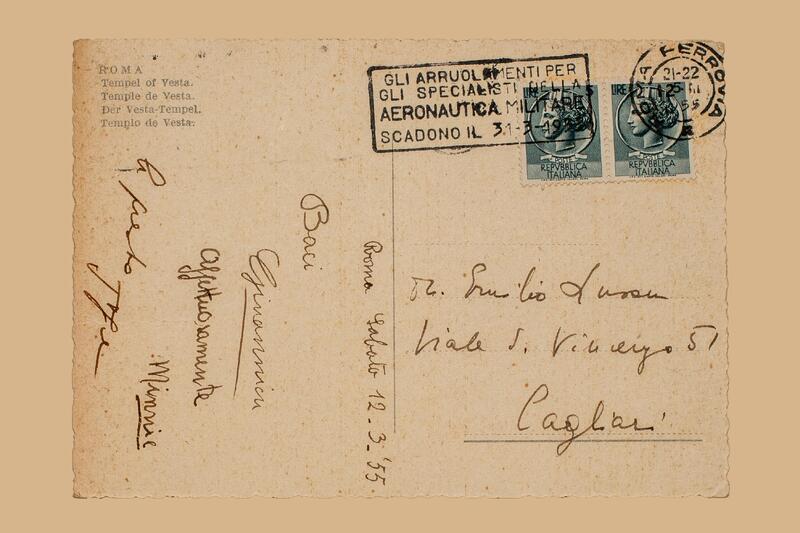 ROMA
Tempel of Vesta.
Temple de Vesta.
Der Vesta-Tempel.
Tempio de Vesta.
GLI ARRUOLAMENTI PER
GLI SPECIALISTI DELLA
AERONAUTICA MILITARE
SCADONO IL 31-3-1955
FERROVIA
21-22
12-III
55
LIRE 5
POSTE
REPVBBLICA
ITALIANA
LIRE
POSTE
REPVBBLICA
ITALIANA
Roma Sabato 12-3-'55
Baci
Affettuosamente
Minnie
A presto
Emilio Lussu
Viale S. Vincenzo 51
Cagliari